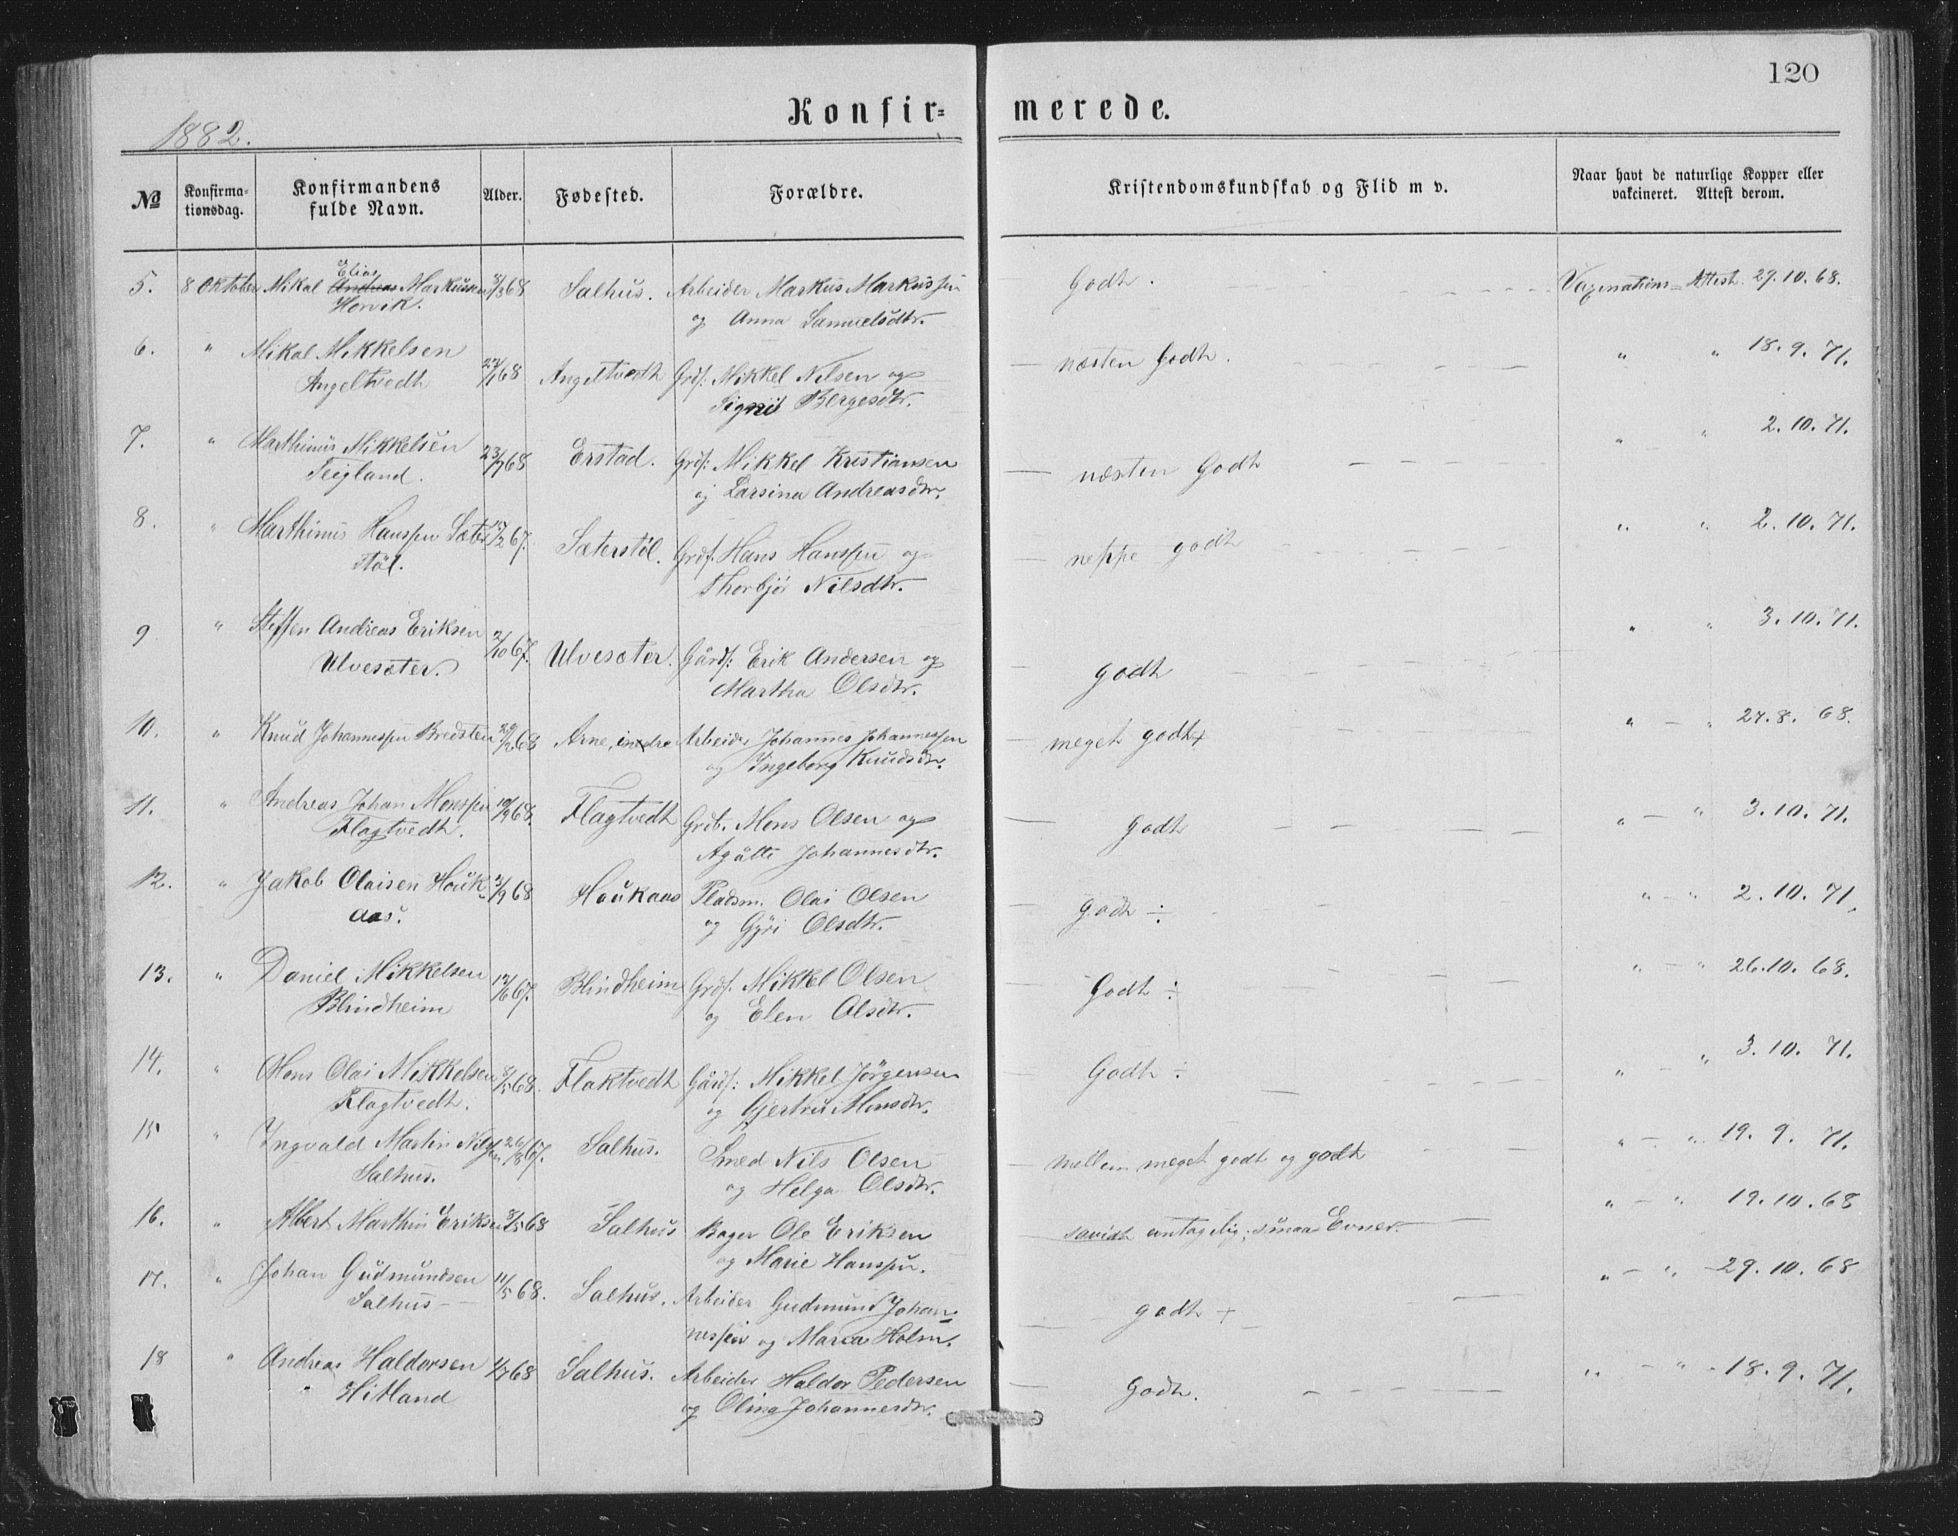 120
Konfir= merede.
1882.
No Konfirma- tionsdag. Konfirmandens fulde Navn. Alder. Fødested. Forældre. Kristendomskundskab og Flid m v. Naar havt de naturlige Kopper eller vakcineret. Attest derom.
5. 8 Oktober Mikal Elias Andreas Markussen 3/3 68 Salhus. Arbeider Markus Markussen Godt. Vaxinations= Attest. 29.10.68.
Horvik. og Anna Samuelsdtr.
6. " Mikal Mikkelsen 22/1 68 Angeltvedt Grdf: Mikkel Nilsen og næsten Godt. " " 18.9.71.
Angeltvedt Signi Bergesdtr.
7. " Marthinus Mikkelsen 23/7 68 Erstad. Grdf: Mikkel Kristiansen næsten Godt " " 2.10.71.
Teigland. og Larsina Andreasdtr.
8. " Marthinus Hanssen Sæter 67. Sæterstöl. Grdf. Hans Hanssen og neppe godt " " 2.10.71.
stöl. Thorbjö Nilsdtr.
9 " Steffen Andreas Eriksen 2/10 67. Ulvesæter. Gårdf: Erik Andersen og godt " " 3.10.71.
Ulvesæter. Martha Olsdtr.
10. " Knud Johannessen Bredsten 29/2 68 Arne, indre Arbeider Johannes Johannessen meget godt+ " — " 27.8.68.
og Ingeborg Knudsdtr.
11. " Andreas Johan Monssen 10/9 68. Flagtvedt Grdb. Mons Olsen og Godt " — " 3.10.71.
Flagtvedt. Agåtte Johannesdtr.
12. " Jakob Olaisen Houk- 2/9 68 Houkaas Pladsm. Olai Olsen Godt ÷ " — " 2.10.71.
aas. og Gjöri Olsdtr.
13. " Daniel Mikkelsen 12/6 67. Blindheim Grdf. Mikkel Olsen Godt ÷ " — " 26.10.68.
Blindheim og Elen Olsdtr.
14. " Mons Olai Mikkelsen 8/5 68. Flaktvedt Gårdf: Mikkel Jörgensen Godt ÷ " — " 3.10.71.
Flagtvedt. og Gjertru Monsdtr.
15 " Ingvald Martin Nilssen 26/8 67. Salhus. Smed Nils Olsen mellem meget godt og godt " — " 19.9.71.
Salhus. og Helga Olsdtr.
16. " Albert Marthin Eriksen 8/5 68 Salhus Bager Ole Eriksen savidt antagelig; smaa Evner. " — " 19.10.68
og Marie Hanssen.
17. " Johan Gudmundsen 11/5 68. Salhus. Arbeider Gudmund Johan= godt + " — " 29.10.68
Salhus — nessen og Maria Holm.
18 " Andreas Haldorsen 1/7 68 Salhus. Arbeider Haldor Pedersen Godt. " — " 18.9.71.
" Hitland og Olina Johannesdtr.